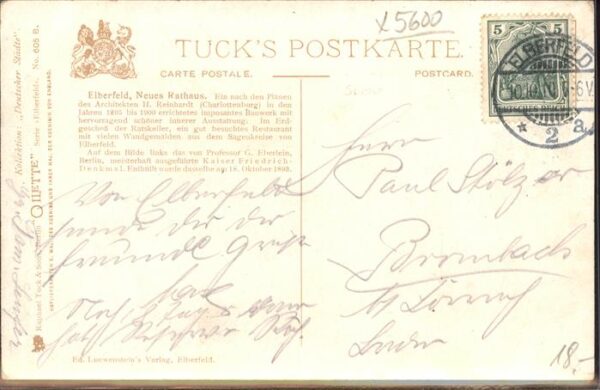 x5600
TUCK'S POSTKARTE.
CARTE POSTALE.
POSTCARD.
5 5
ELBERFELD
10.10.
5-6 V.
* 2 a
Elberfeld, Neues Rathaus. Ein nach den Plänen
des Architekten H. Reinhardt (Charlottenburg) in den
Jahren 1895 bis 1900 errichtetes imposantes Bauwerk mit
hervorragend schöner innerer Ausstattung; im Erd-
geschoß der Ratskeller, ein gut besuchtes Restaurant
mit vielen Wandgemälden aus dem Sagenkreise von
Elberfeld.
Auf dem Bilde links das von Professor G. Eberlein,
Berlin, meisterhaft ausgeführte Kaiser Friedrich-
Denkmal. Enthüllt wurde dasselbe am 18. Oktober 1893.
Kollektion: „Deutscher Städte".
„OILETTE" Serie „Elberfeld", No. 605 B.
Raphael Tuck & Sons
Von Elberfeld
sende dir die
freundl. Grüße
Noch
Tage dann
hat Reserve Ruh
Herrn
Paul Stölzer
Brombach
b/ Lörrach
Baden
Ed. Loewenstein's Verlag, Elberfeld.
18.-